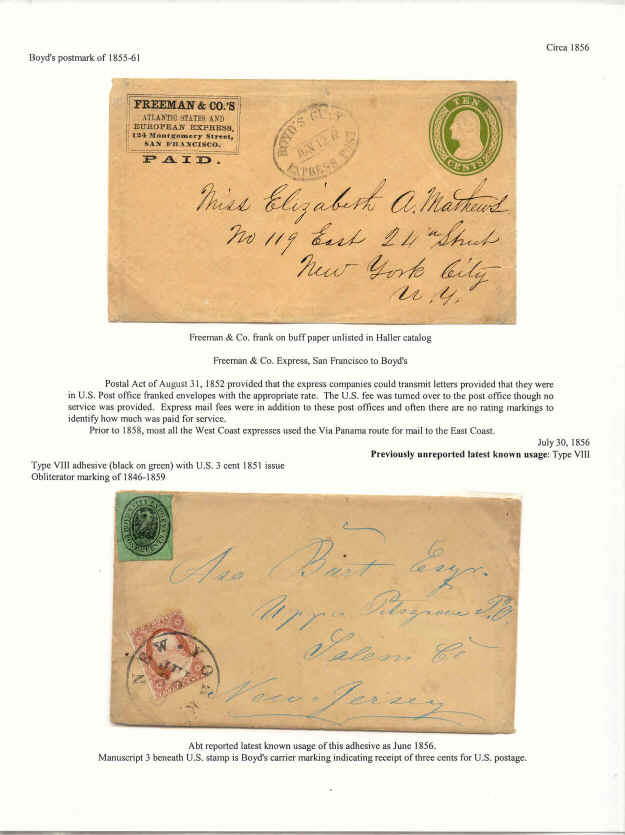 Circa 1856
Boyd's postmark of 1855-61
FREEMAN & CO.'S
ATLANTIC STATES AND
EUROPEAN EXPRESS,
124 Montgomery Street,
SAN FRANCISCO.
PAID.
BOYD'S CITY
EXPRESS POST
TEN
CENTS
Miss Elizabeth A. Mathews
No 119 East 24th Street
New York City
N.Y.
Freeman & Co. frank on buff paper unlisted in Haller catalog
Freeman & Co. Express, San Francisco to Boyd's
Postal Act of August 31, 1852 provided that the express companies could transmit letters provided that they were
in U.S. Post office franked envelopes with the appropriate rate. The U.S. fee was turned over to the post office though no
service was provided. Express mail fees were in addition to these post offices and often there are no rating markings to
identify how much was paid for service.
Prior to 1858, most all the West Coast expresses used the Via Panama route for mail to the East Coast.
July 30, 1856
Previously unreported latest known usage: Type VIII
Type VIII adhesive (black on green) with U.S. 3 cent 1851 issue
Obliterator marking of 1846-1859
Asa Burt Esqr.
Salem Co
New-Jersey
NEW YO
Abt reported latest known usage of this adhesive as June 1856.
Manuscript 3 beneath U.S. stamp is Boyd's carrier marking indicating receipt of three cents for U.S. postage.